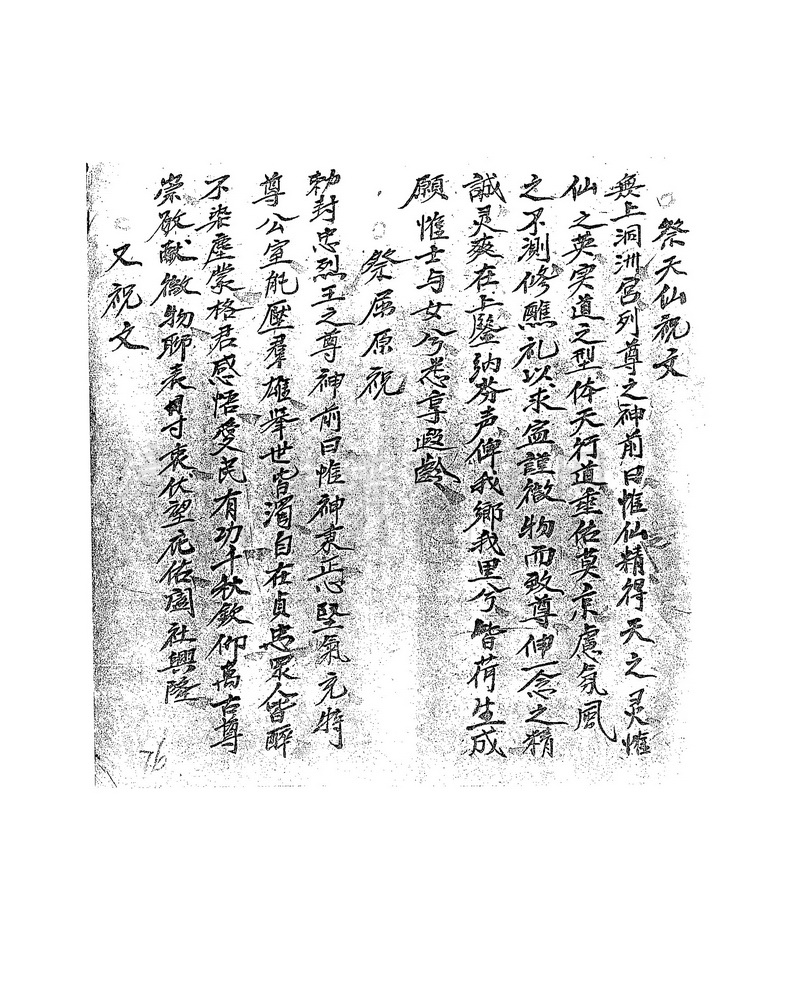 祭天仙祝文
無上洞洲宮列尊之神前曰惟仙精得天之灵惟
仙之英实道之型体天行道垂佑莫京慮氛風
之不測修醮礼以求寍謹微物而致尊伸一念之精
誠灵爽在上鑒纳芬声俾我鄉我里兮皆荷生成
願惟士与女兮悉享遐齡
祭屈原祝
勅封忠烈王之尊神前曰惟神秉忠堅氣充特
尊公室能壓羣雄举世皆濁自在貞忠眾人皆醉
不染塵蒙格君感悟愛民有功千秋欽仰萬古尊
崇敬献微物聊表寸衷伏望庇佑闔社興隆
又祝文
76